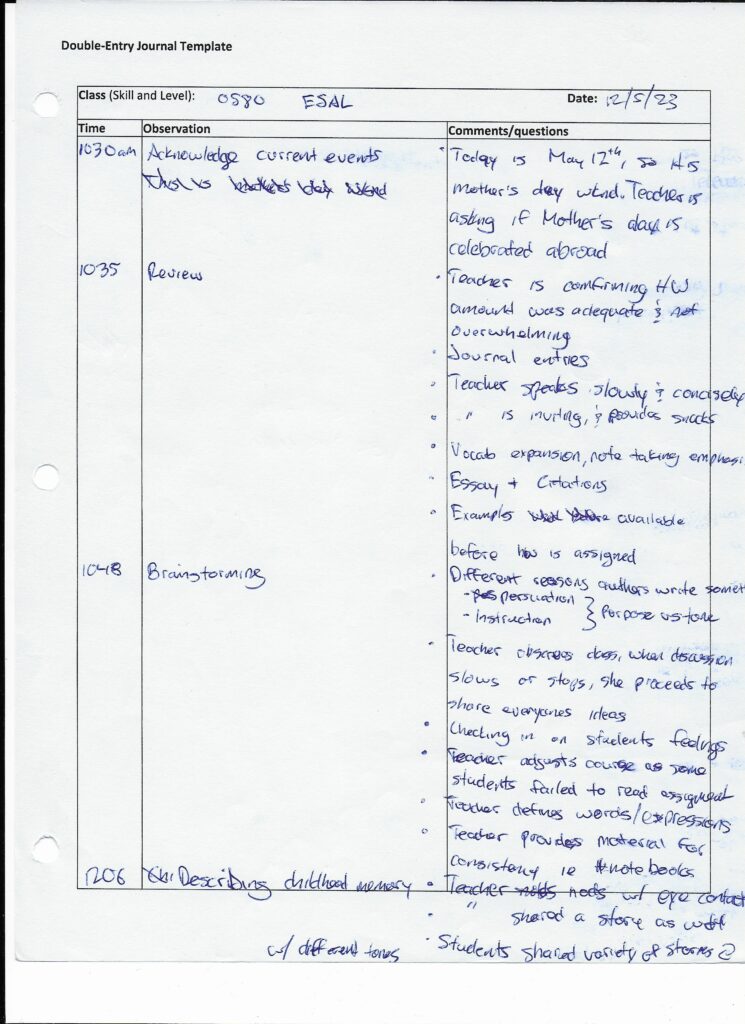 Double-Entry Journal Template
Class (Skill and Level): 0580 ESAL Date: 12/5/23
Time Observation Comments/questions
1030am Acknowledge current events • Today is May 12th, so it is
mother's day wknd. Teacher is
asking if Mother's day is
celebrated abroad
1035 Review • Teacher is comfirming HW
amount was adequate & not
overwhelming
• Journal entries
• Teacher speaks slowly & concisely
• " is inviting, & provides snacks
• Vocab expansion, note taking emphasi
• Essay + Citations
• Examples available
before hw is assigned
1048 Brainstorming • Different reasons authors wrote somet
- persuation } Purpose vs tone
- Instruction
• Teacher observes class, when discussion
slows or stops, she proceeds to
share everyones ideas
• Checking in on students feelings
• Teacher adjusts course as some
students failed to read assignment
• Teacher defines words/expressions
• Teacher provides material for
consistency ie notebooks
1206 Describing childhood memory • Teacher nods w/ eye contact
• " shared a story as well
w/ different tones • Students shared variety of stories